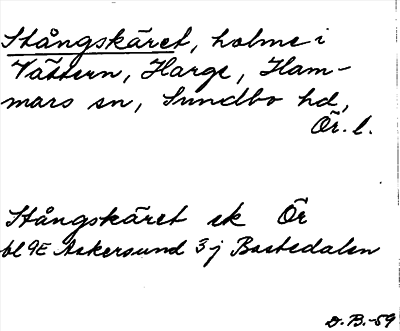 Stångskäret, holme i
Vättern, Harge, Ham-
mars sn, Sundbo hd,
Ör. l.
Stångskäret ek Ör
bl 9E Askersund 3 j Bastedalen
D. B. -59